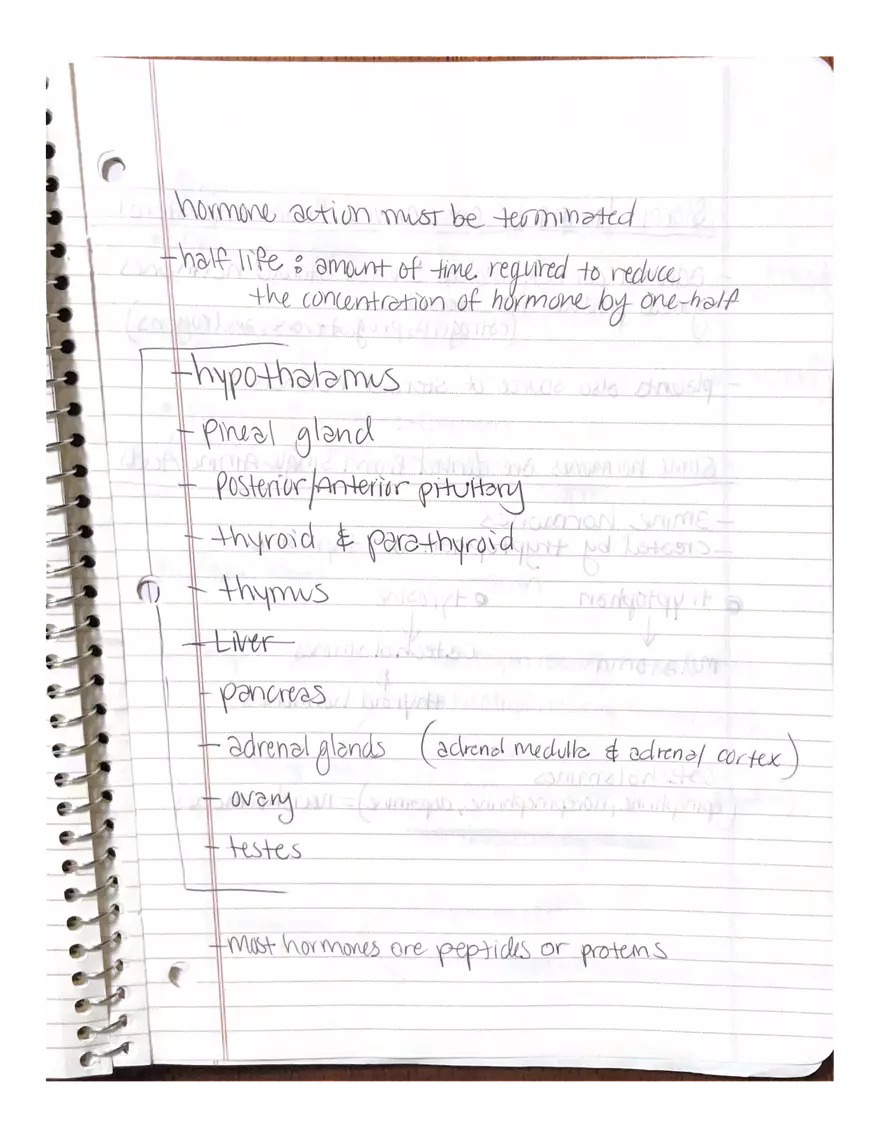 hormone action must be terminated
- half life : amount of time required to reduce
the concentration of hormone by one-half
- hypothalamus
- pineal gland
- Posterior/Anterior pituitary
- thyroid & parathyroid
① - thymus
- Liver
- pancreas
- adrenal glands (adrenal medulla & adrenal cortex)
- ovary
- testes
- most hormones are peptides or proteins